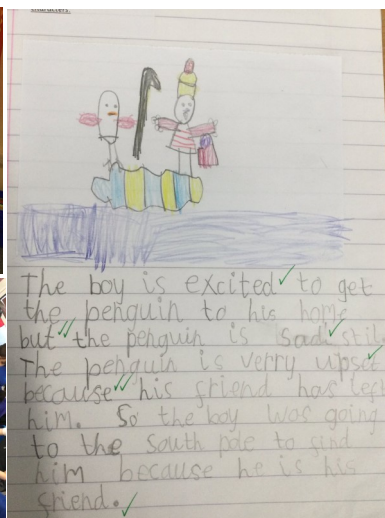 The boy is excited to get
the penguin to his home
but the penguin is sad still
The penguin is verry upset
because his friend has left
him. So the boy was going
to the South pole to find
him because he is his
friend.